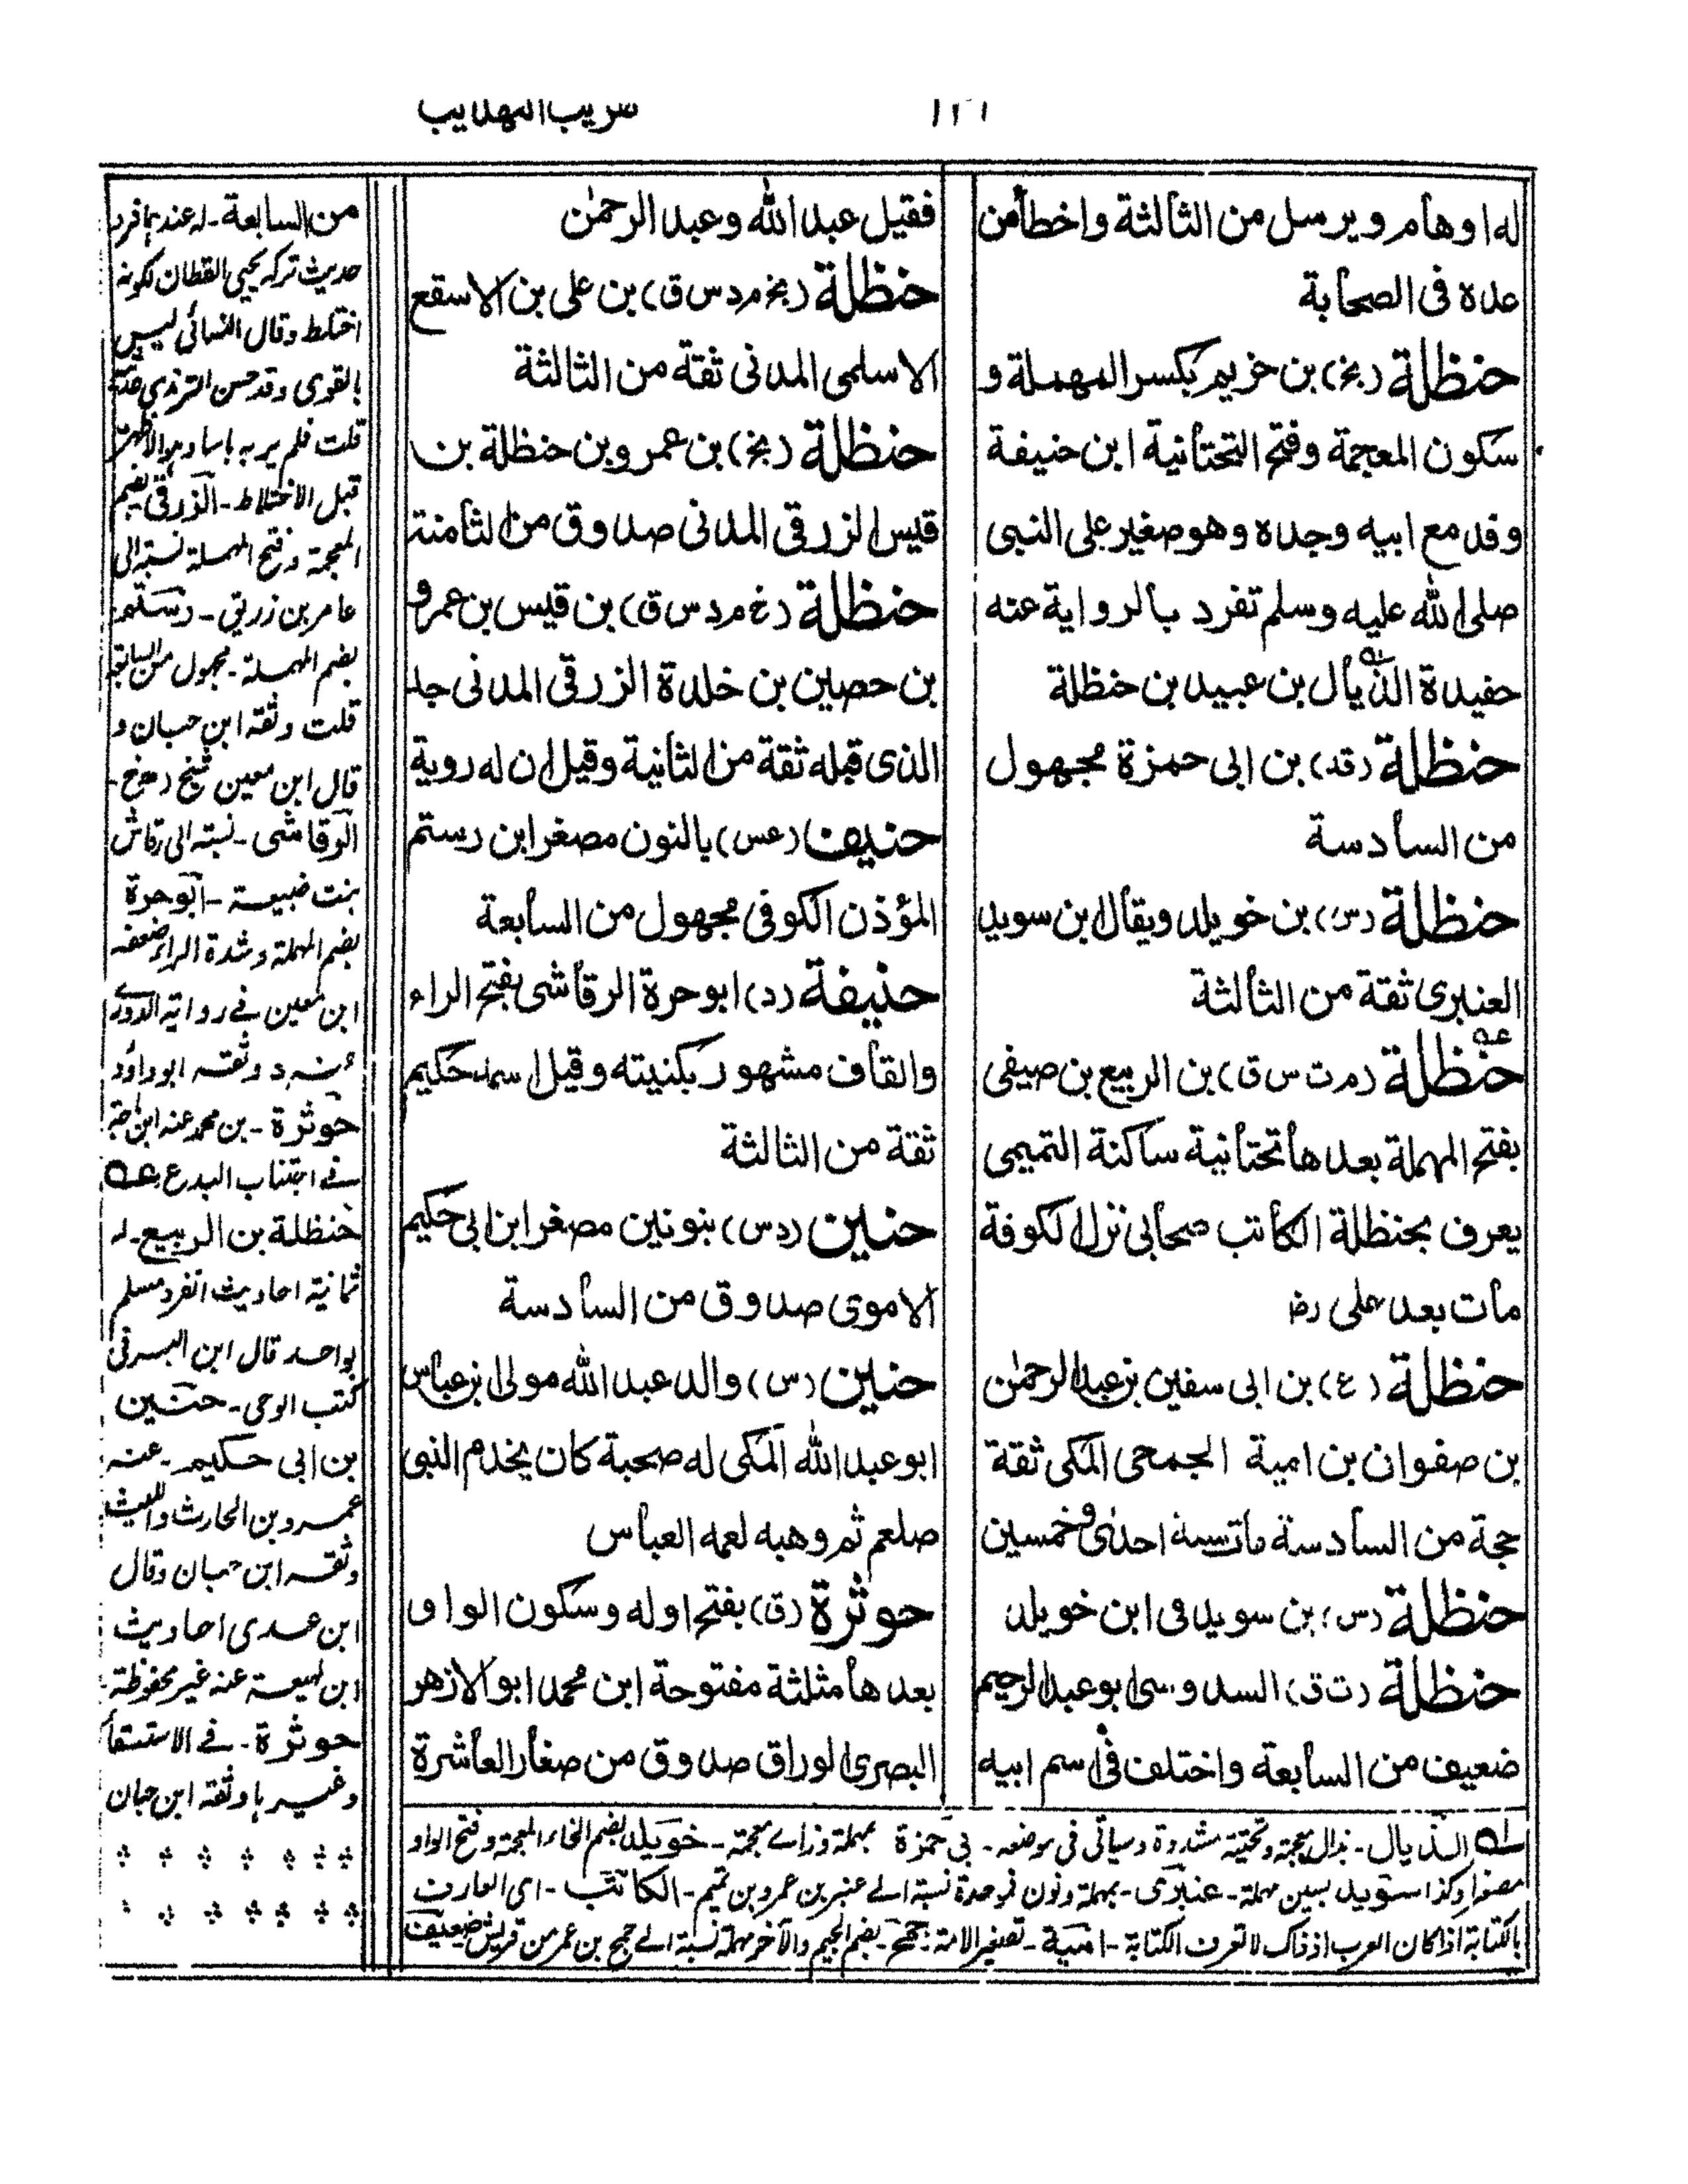 تقريب التهذيب
١٢٦
له اوهام ويرسل من الثالثة واخطأ من
عده فى الصحابة
حنظلة (بخ) بن حزيم بكسر المهملة و
سكون المعجمة وفتح التحتانية ابن حنيفة
وفد مع ابيه وجده وهو صغير على النبى
صلى الله عليه وسلم تفرد بالرواية عنه
حفيدة الذيال بن عبيد بن حنظلة
حنظلة (قد) بن ابى حمزة مجهول
من السادسة
حنظلة (س) بن خويلد ويقال ابن سويد
العنبرى ثقة من الثالثة
حنظلة (م ت س ق) بن الربيع بن صيفى
بفتح المهملة بعدها تحتانية ساكنة التميمى
يعرف بحنظلة الكاتب صحابى نزل الكوفة
مات بعد على رض
حنظلة (ع) بن ابى سفين بن عبد الرحمٰن
بن صفوان بن امية الجمحى المكى ثقة
حجة من السادسة مات سنة احدى وخمسين
حنظلة (س) بن سويد فى ابن خويلد
حنظلة (ت ق) السدوسى ابو عبد الرحيم
ضعيف من السابعة واختلف فى اسم ابيه
فقيل عبد الله وعبد الرحمٰن
حنظلة (بخ م د س ق) بن على بن الاسقع
الاسلمى المدنى ثقة من الثالثة
حنظلة (بخ) بن عمرو بن حنظلة بن
قيس الزرقى المدنى صدوق من الثامنة
حنظلة (خ م د س ق) بن قيس بن عمرو
بن حصين بن خلدة الزرقى المدنى جد
الذى قبله ثقة من الثانية وقيل ان له روية
حنيف (عس) بالنون مصغر ابن رستم
المؤذن الكوفى مجهول من السابعة
حنيفة (د) ابو حرة الرقاشى بفتح الراء
والقاف مشهور بكنيته وقيل اسمه حكيم
ثقة من الثالثة
حنين (د س) بنونين مصغر ابن ابى حكيم
الاموى صدوق من السادسة
حنين (س) والد عبد الله مولى ابن عباس
ابو عبد الله المكى له صحبة كان يخدم النبى
صلعم ثم وهبه لعمه العباس
حوثرة (ق) بفتح اوله وسكون الواو
بعدها مثلثة مفتوحة ابن محمد ابو الازهر
البصرى الوراق صدوق من صغار العاشرة
من السابعة - له عندهما فرد
حديث تركه يحيى القطان لكونه
اختلط وقال النسائى ليس
بالقوى وقد حسن الترمذى حديثه
قلت فلم ير به باسا وهو الاظهر
قبل الاختلاط - الزرقى بضم
المعجمة وفتح المهملة نسبة الى
عامر بن زريق - رستم
بضم المهملة - مجهول من السابعة
قلت وثقه ابن حبان و
قال ابن معين شيخ
الرقاشى - نسبة الى رقاش
بنت ضبيعة - ابو حرة
بضم المهملة وشدة الراء ضعفه
ابن معين فى رواية الدورى
عنه ووثقه ابو داؤد
حوثرة - بن محمد عنه ابن ماجة
فى اجتناب البدع عه
حنظلة بن الربيع - له
ثمانية احاديث انفرد مسلم
بواحد قال ابن البرقى
كتب الوحى - حنين
بن ابى حكيم - عنه
عمرو بن الحارث والليث
وثقه ابن حبان وقال
ابن عدى احاديث
ابن لهيعة عنه غير محفوظة -
حوثرة - فى الاستسقا
وغيرها وثقه ابن حبان
له الذيال - بذال معجمة وتحتية مشددة وسياتى فى موضعه - بى حمزة بمهملة وزاے معجمة - خويلد بضم الخاء المعجمة وفتح الواو
مصغرا وكذا سويد بسين مهملة - عنبرى - بمهملة ونون فموحدة نسبة الے عنبر بن عمرو بن تميم - الكاتب - اى العارف
بالكتابة اذا كان العرب اذ ذاك لا تعرف الكتابة - امية - تصغير الامة - جمح - بضم الجيم والآخر مهملة نسبة الے جمح بن عمر من قريش ضعيف